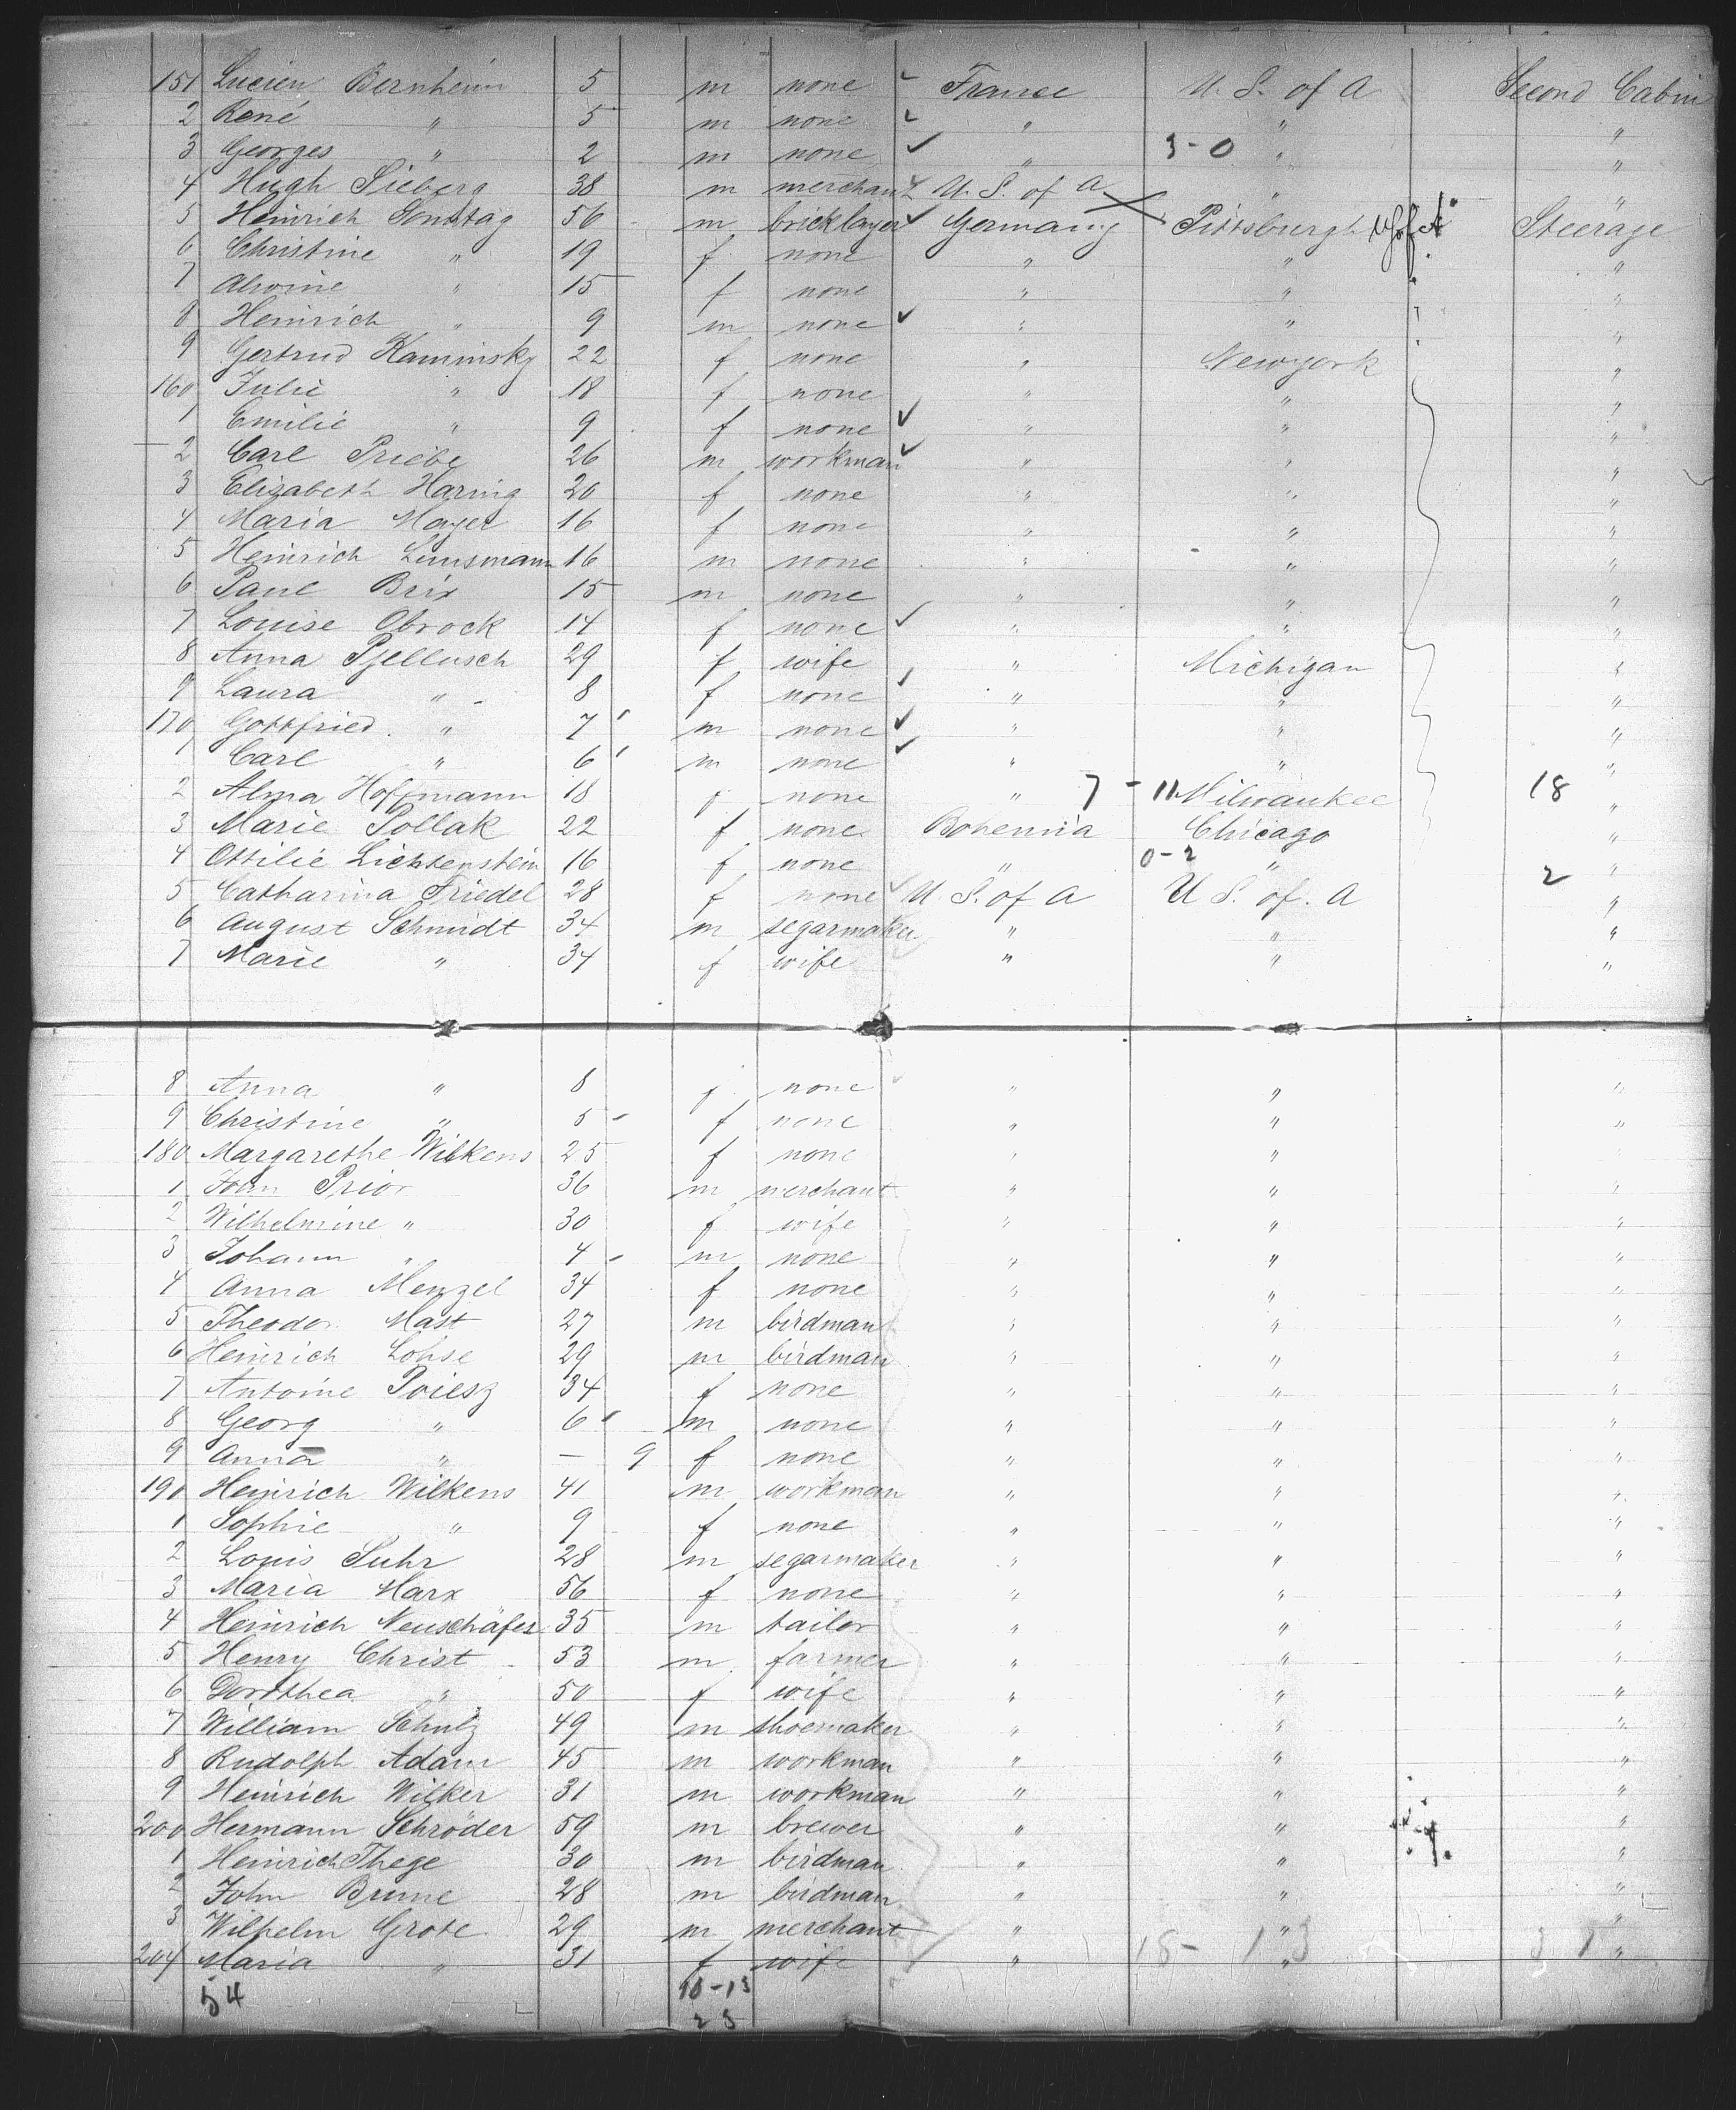 151 Lucien Bernheim 5 m none ✓ France U. S. of A Second Cabin
2 René " 5 m none ✓ " " "
3 Georges " 2 m none ✓ " 3-0 " "
4 Hugh Sieberg 38 m merchant U. S. of A " "
5 Heinrich Sonntag 56 m bricklayer ✓ Germany Pittsburgh Steerage
6 Christine " 19 f none " " "
7 Alwine " 15 f none " " "
8 Heinrich " 9 m none ✓ " " "
9 Gertrud Kaminsky 22 f none " Newyork "
160 Julie " 18 f none " " "
1 Emilie " 9 f none ✓ " " "
2 Carl Priebe 26 m workman ✓ " " "
3 Elisabeth Haring 20 f none " " "
4 Maria Mayer 16 f none " " "
5 Heinrich Linsmann 16 m none " " "
6 Paul Brix 15 m none " " "
7 Louise Obrock 14 f none ✓ " " "
8 Anna Pjellusch 29 f wife " Michigan "
9 Laura " 8 f none ✓ " " "
170 Gottfried " 7 m none ✓ " " "
1 Carl " 6 m none ✓ " " "
2 Alma Hoffmann 18 f none " 7-11 Milwaukee 18 "
3 Marie Pollak 22 f none Bohemia Chicago "
4 Ottilie Lichtenstein 16 f none " 0-2 " "
5 Catharina Friedel 28 f none ✓ U. S. of A U S. of. A 2 "
6 August Schmidt 34 m segarmaker " " "
7 Marie " 34 f wife " " "
8 Anna " 8 f none " " "
9 Christine " 5 f none " " "
180 Margarethe Wilkens 25 f none " " "
1 Prior 36 m merchant " " "
2 Wilhelmine " 30 f wife " " "
3 Johann " 4 m none " " "
4 Anna Menzel 34 f none " " "
5 Theodor Mast 27 m birdman " " "
6 Heinrich Lohse 29 m birdman " " "
7 Antoine Poiesz 34 f none " " "
8 Georg " 6 m none " " "
9 Anna " — 9 f none " " "
190 Heinrich Wilkens 41 m workman " " "
1 Sophie " 9 f none " " "
2 Louis Suhr 28 m segarmaker " " "
3 Maria Marx 56 f none " " "
4 Heinrich Neuschäfer 35 m tailor " " "
5 Henry Christ 53 m farmer " " "
6 Dorothea " 50 f wife " " "
7 William Schulz 49 m shoemaker " " "
8 Rudolph Adam 45 m workman " " "
9 Heinrich Wilker 31 m workman " " "
200 Hermann Schröder 59 m brewer " " "
1 Heinrich Thege 30 m birdman " " "
2 John Brune 28 m birdman " " "
3 Wilhelm Grote 29 m merchant " " "
204 Maria " 31 f wife " 18-13 " 31 "
54 10-13
23